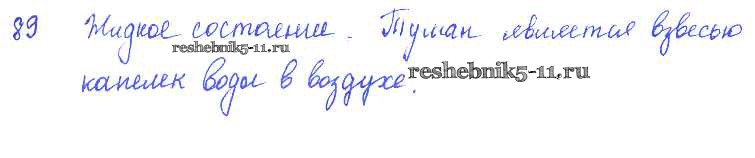 89 Жидкое состояние. Туман является взвесью
reshebnik5-11.ru
капелек воды в воздухе.
reshebnik5-11.ru